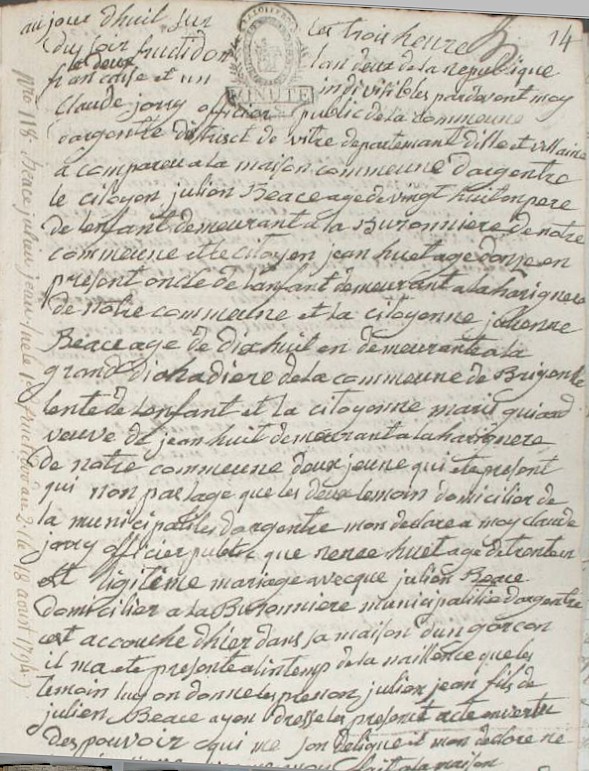 aujour dhuil sur les trois heure 14
du soir fruictidon lan deux de la republique
le deux
francaise et un indivisibles pardevent moy
MINUTE
Claude jorry officier public de la commeune
dargentre district de vitre departemant dille et villaine
a comparu a la maison commeune dargentre
le citoyen julien Beace age de vingt huit en pere
de lenfant demeurant a la Buronniere de notre
commeune et le citoyen jean huet age donze en
present oncle de lenfant demeurant a la harignere
de notre commeune et la citoyenne julienne
Beace age de dixhuit en demeurante a la
grand diohadiere de la commeune de Brigente
tente de lenfant et la citoyenne marie guiard
veuve de jean huit demeurant a la harignere
de notre commeune deux jeune qui ete present
qui non pas lage que les deux temoin domicilier de
la municipalites dargentre mon declare a moy claude
jorry officier public que renee huet age de trente en
et ligitime mariage avecque julien Beace
domicilier a la Buronniere municipalitie dargentre
est accouche dhier dans sa maison dun garcon
il ma ete presente a lintemp de la naissence que les
temoin luy on donne les prenon julien jean fils de
julien Beace ayen dresse les present acte en vertu
des pouvoir qui me son deligue il mon declare ne
moy fait a la maison
No 118. Beace julien jean, ne le 1er fructidor an 2. (le 18 aout 1794.)